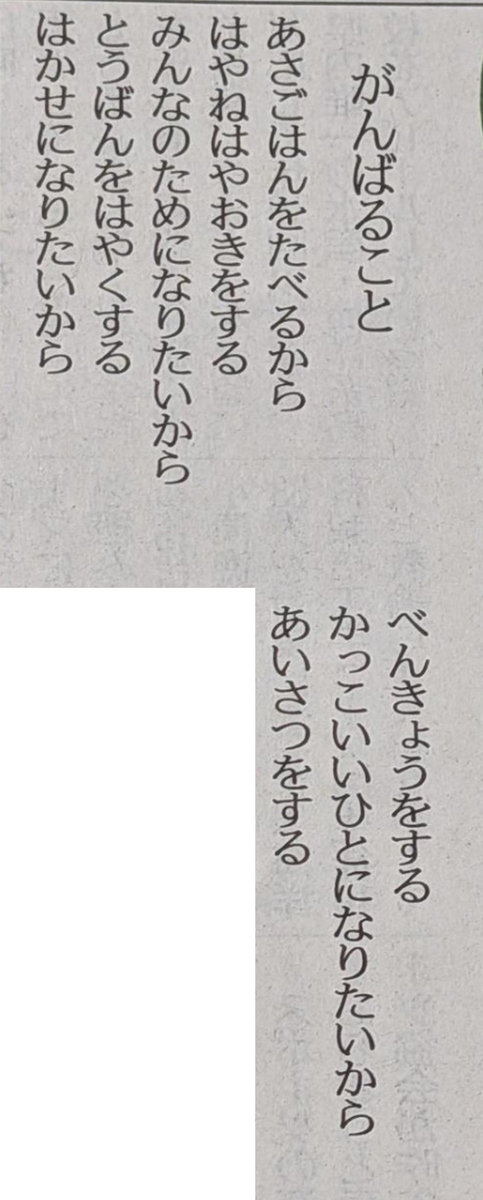 がんばること
あさごはんをたべるから
はやねはやおきをする
みんなのためになりたいから
とうばんをはやくする
はかせになりたいから
べんきょうをする
かっこいいひとになりたいから
あいさつをする